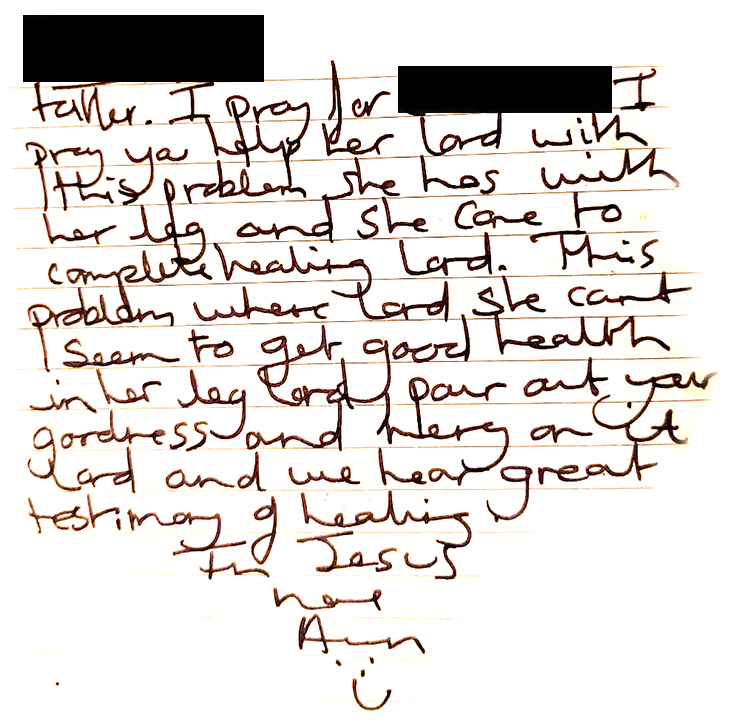 Father. I pray for I
pray ya help her lord with
this problem she has with
her leg and she come to
complete healing lord. This
problem where lord she cant
seem to get good health
in her leg lord pour out your
goodness and mercy on it
lord and we hear great
testimony of healing
In Jesus
name
Amen